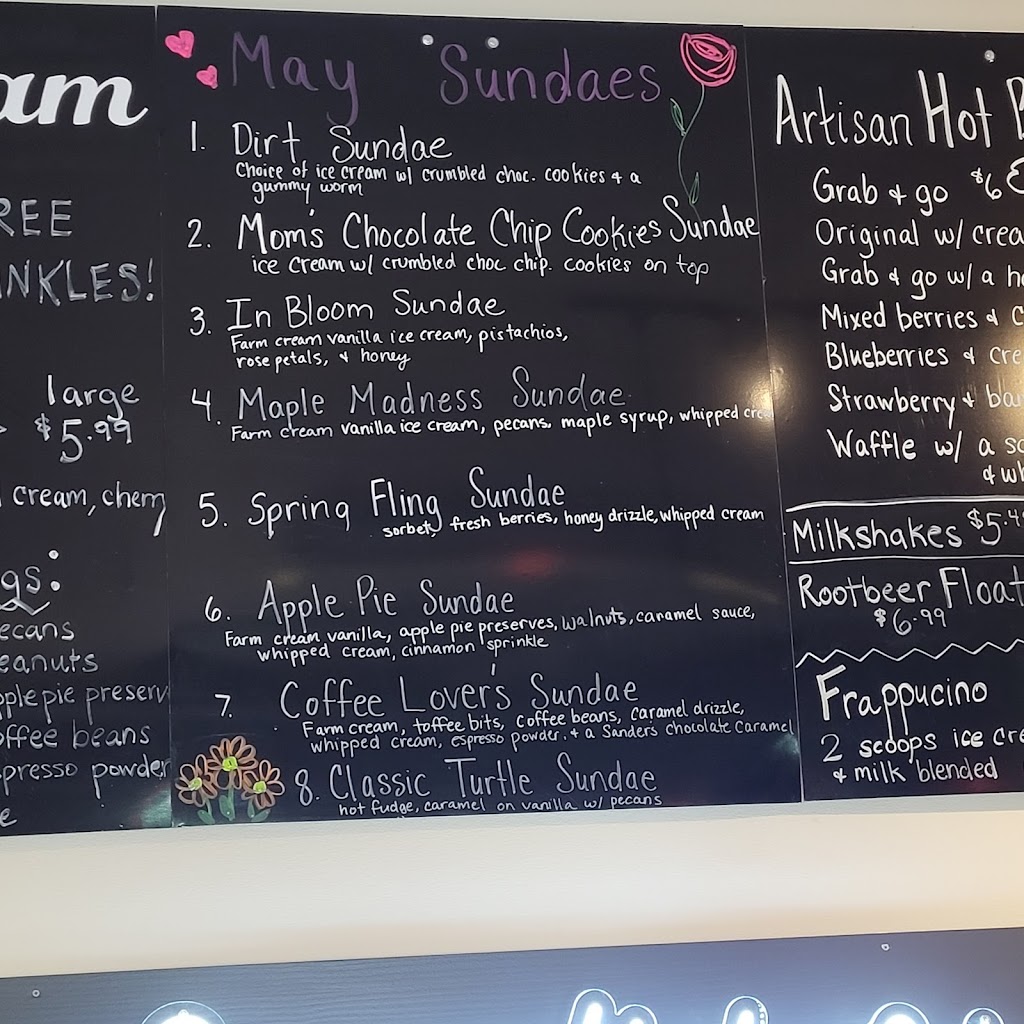 am
REE
NKLES!
large
$5.99
cream, cherry
gs:
ecans
eanuts
pple pie preserv
offee beans
presso powder
e
May Sundaes
1. Dirt Sundae
Choice of ice cream w/ crumbled choc. cookies & a
gummy worm
2. Mom's Chocolate Chip Cookies Sundae
ice cream w/ crumbled choc chip. cookies on top
3. In Bloom Sundae
Farm cream vanilla ice cream, pistachios,
rose petals, & honey
4. Maple Madness Sundae
Farm cream vanilla ice cream, pecans, maple syrup, whipped cream
5. Spring Fling Sundae
sorbet, fresh berries, honey drizzle, whipped cream
6. Apple Pie Sundae
Farm cream vanilla, apple pie preserves, walnuts, caramel sauce,
whipped cream, cinnamon sprinkle
7. Coffee Lover's Sundae
Farm cream, toffee bits, coffee beans, caramel drizzle,
whipped cream, espresso powder. & a Sanders chocolate Caramel
8. Classic Turtle Sundae
hot fudge, caramel on vanilla w/ pecans
Artisan Hot
Grab & go $6
Original w/ crea
Grab & go w/ a h
Mixed berries & c
Blueberries & cre
Strawberry & ba
Waffle w/ a sc
& wh
Milkshakes $5.4
Rootbeer Float
$6.99
Frappucino
2 scoops ice cre
& milk blended